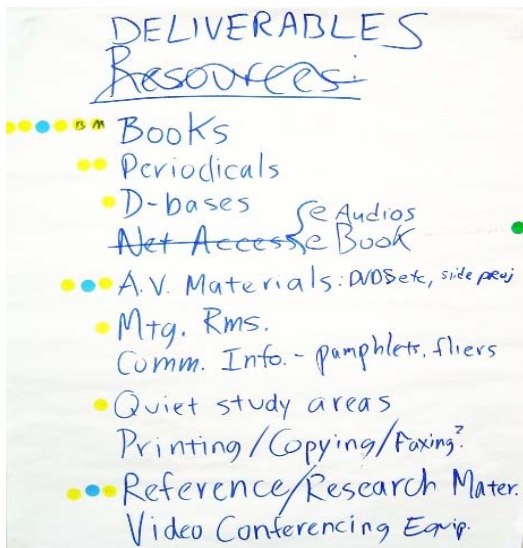 DELIVERABLES
Resources:
B M Books
Periodicals
D-bases
e Audios
Net Access e Book
A.V. Materials: DVDSetc, side proj
Mtg. Rms.
Comm. Info. - pamphlets, fliers
Quiet study areas
Printing/Copying/Faxing?
Reference/Research Mater.
Video Conferencing Equip.